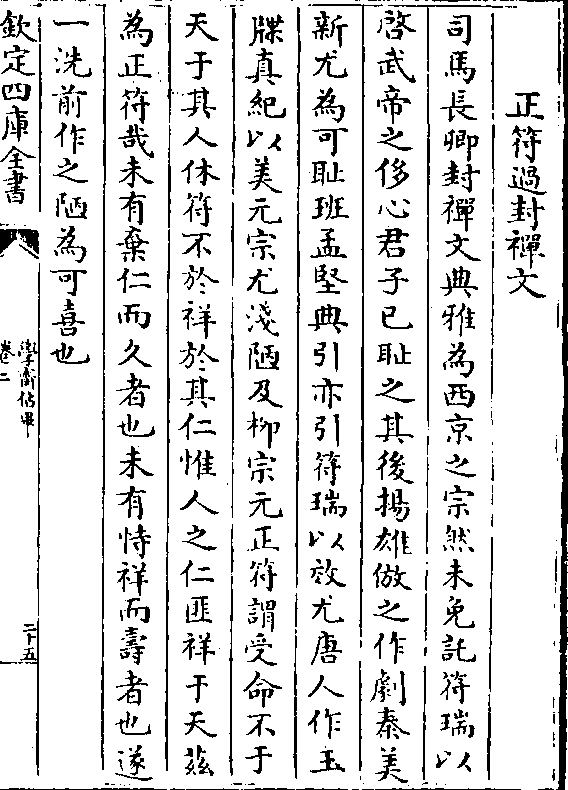 正符過封禪文
司馬長卿封禪文典雅為西京之宗然未免託符瑞以
啓武帝之侈心君子已耻之其後揚雄倣之作劇秦美
新尤為可耻班孟堅典引亦引符瑞以效尤唐人作玉
牒真紀以美元宗尤淺陋及柳宗元正符謂受命不于
天于其人休符不於祥於其仁惟人之仁匪祥于天兹
為正符哉未有棄仁而久者也未有恃祥而壽者也遂
一洗前作之陋為可喜也
欽定四庫全書
學齋佔畢
卷二
二十五